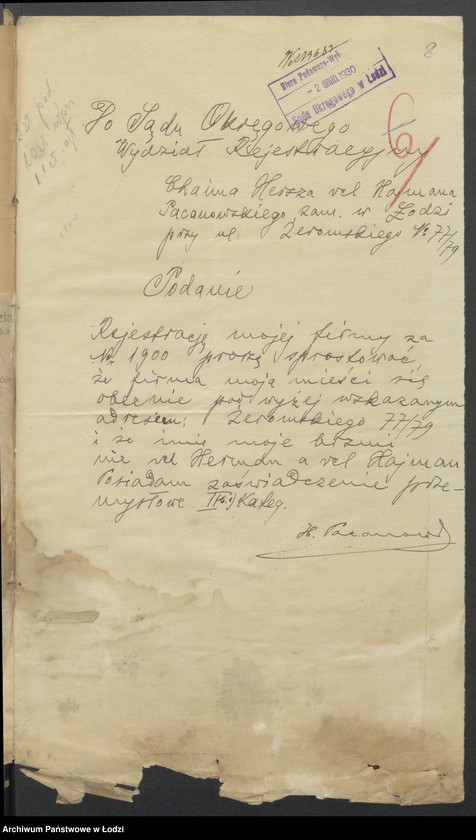 8
Biuro Podawczo-Wyk.
- 2 GRUD. 1930
Sądu Okręgowego w Łodzi
6
Do Sądu Okręgowego
Wydział Rejestracyjny
Chaima Hersza vel Hajmana
Pacanowskiego, zam. w Łodzi
przy ul. Żeromskiego № 77/79
Podanie
Rejestrację mojej firmy za
Nr 1900 proszę sprostować,
że firma moja mieści się
obecnie pod wyżej wskazanym
adresem: Żeromskiego 77/79
i że imię moje brzmi
nie vel Herman a vel Hajman
Posiadam zaświadczenie prze-
mysłowe II kateg.
H. Pacanowski
Archiwum Państwowe w Łodzi